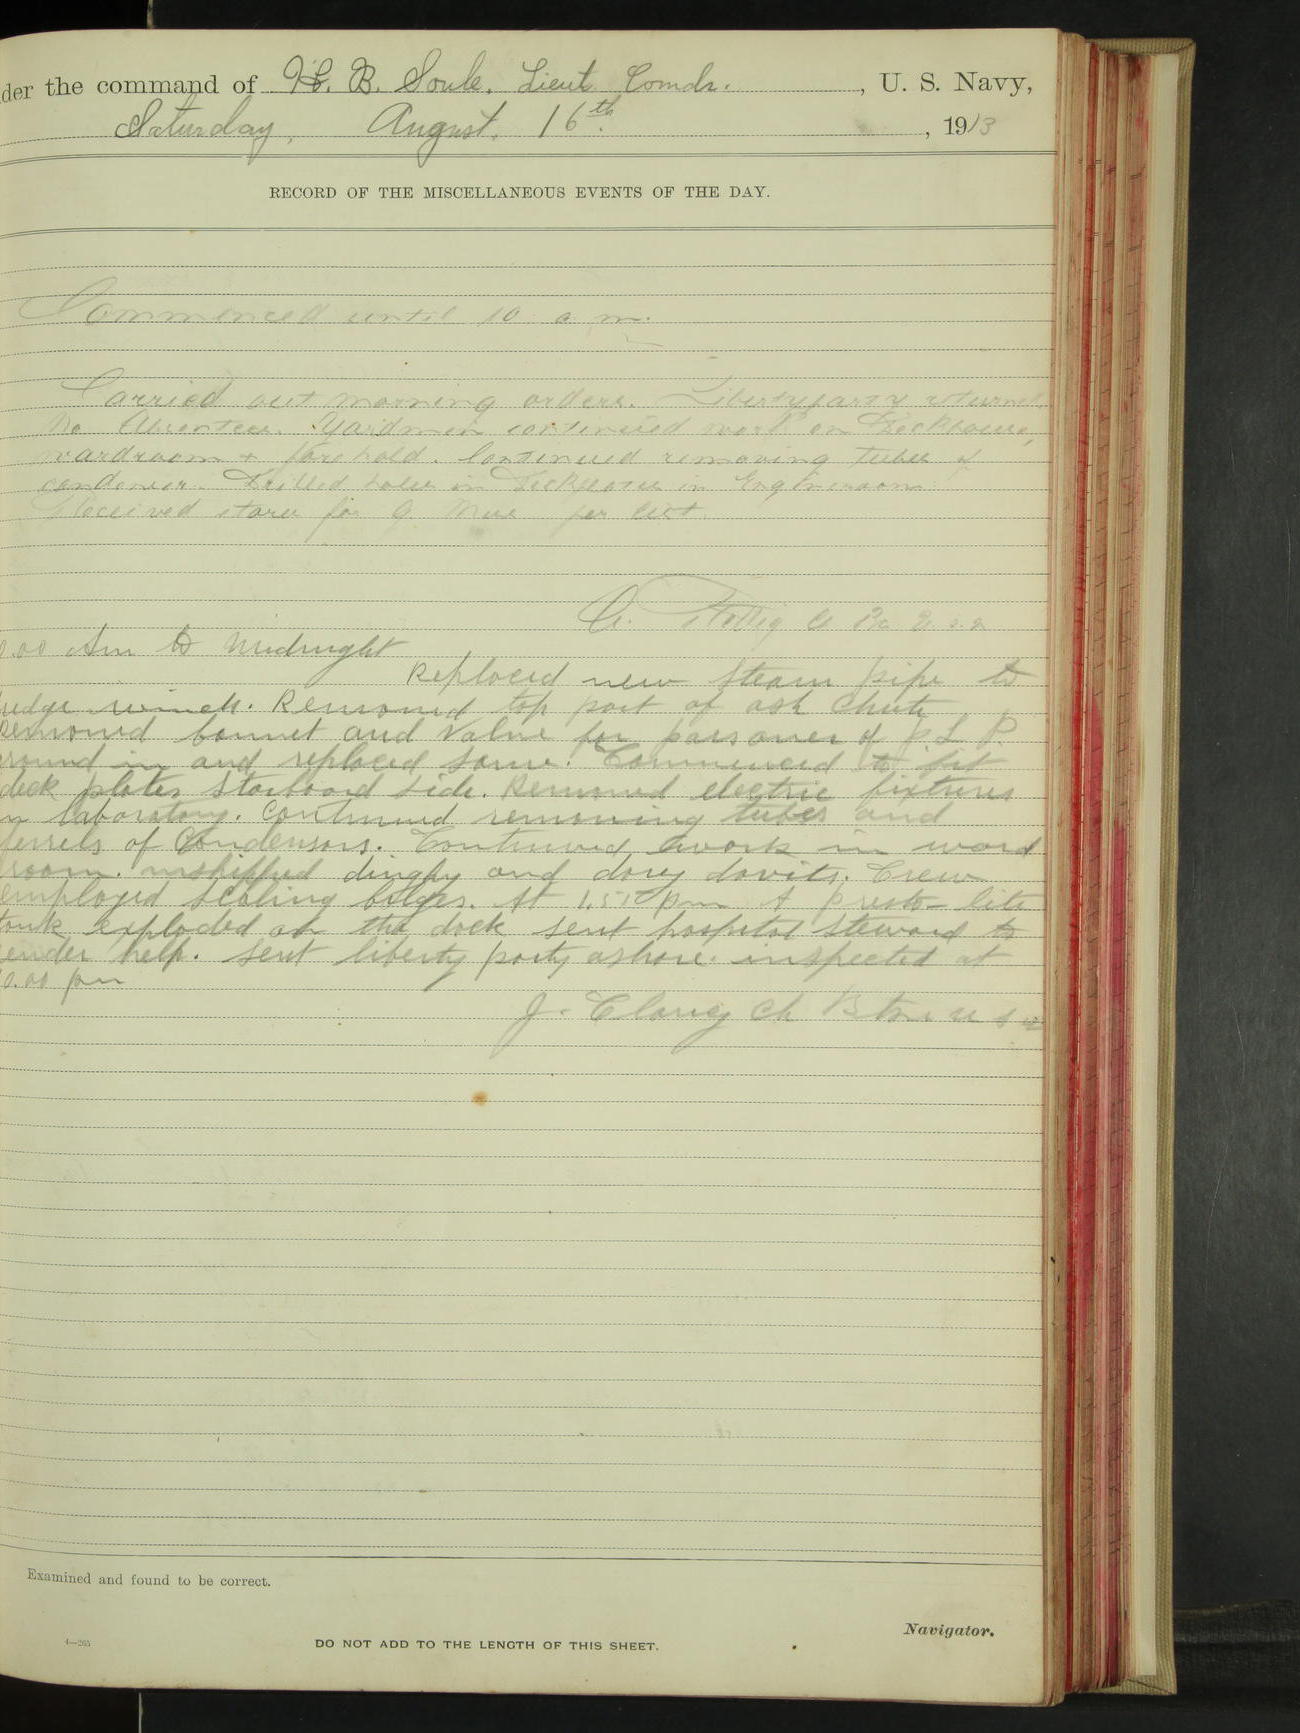 der the command of H. B. Soule, Lieut. Comdr., U. S. Navy,
Saturday, August 16th, 1913
RECORD OF THE MISCELLANEOUS EVENTS OF THE DAY.
Commenced until 10 a m.
Carried out morning orders. Libertyparty returned
No Absentees. Yardmen continued work on Deckhouse,
wardroom + forehold. Continued removing tubes of
condenser. Drilled holes in Deckhouse in Engineroom
Received stores for G. Mess per list.
.00 Am to Midnight
Replaced new steam pipe to
winch. Removed top part of ash chute
Removed bonnet and valve for passover of L. P.
ground in and replaced same. Commenced to fit
deck plates starboard side. Removed electric fixtures
in laboratory. Continued removing tubes and
ferrels of Condensors. Continued work in ward
room. unshipped dinghy and dory davits. Crew
employed scaling bilges. At 1.50 pm A presto lite
tank exploded on the dock sent hospital steward to
render help. Sent liberty party ashore. inspected at
0.00 pm
J. Clancy Ch Btsn U S N
Examined and found to be correct.
Navigator.
4—265
DO NOT ADD TO THE LENGTH OF THIS SHEET.